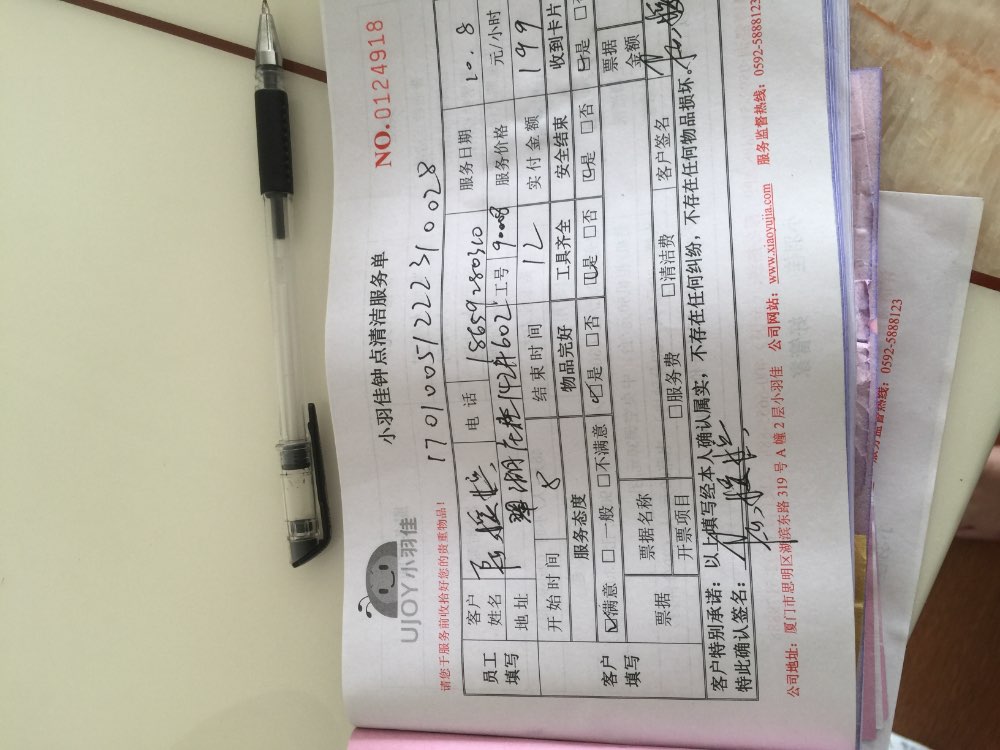 UJOY小羽佳
小羽佳钟点清洁服务单
NO.0124918
请您于服务前收拾好您的贵重物品!
17010051222310028
员工填写
客户姓名
电话 18659280310
服务日期 10.8
地址
工号
服务价格 元/小时
开始时间 8
结束时间 12
实付金额 199
客户填写
服务态度 物品完好 工具齐全 安全结束 收到卡片
☑满意 □一般 □不满意 ☑是 □否 ☑是 □否 ☑是 □否 ☑是
票据
票据名称
票据金额
开票项目 □服务费 □清洁费
客户签名
客户特别承诺:以上填写经本人确认属实,不存在任何纠纷,不存在任何物品损坏。
特此确认签名:
公司地址:厦门市思明区湖滨东路319号A幢2层小羽佳 公司网站:www.xiaoyujia.com 服务监督热线:0592-5888123
服务监督热线:0592-5888123